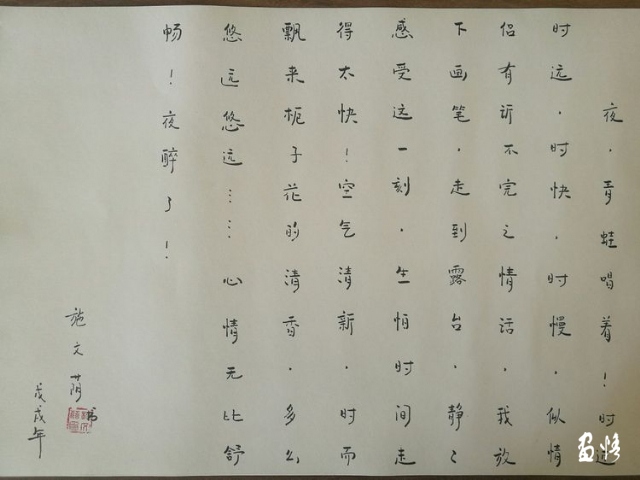 夜，青蛙唱着！时近
时远，时快，时慢，似情
侣有诉不完之情话，我放
下画笔，走到露台，静々
感受这一刻，生怕时间走
得太快！空气清新，时而
飘来栀子花的清香，多么
悠远悠远……心情无比舒
畅！夜醉了！
施文荫书
戊戌年